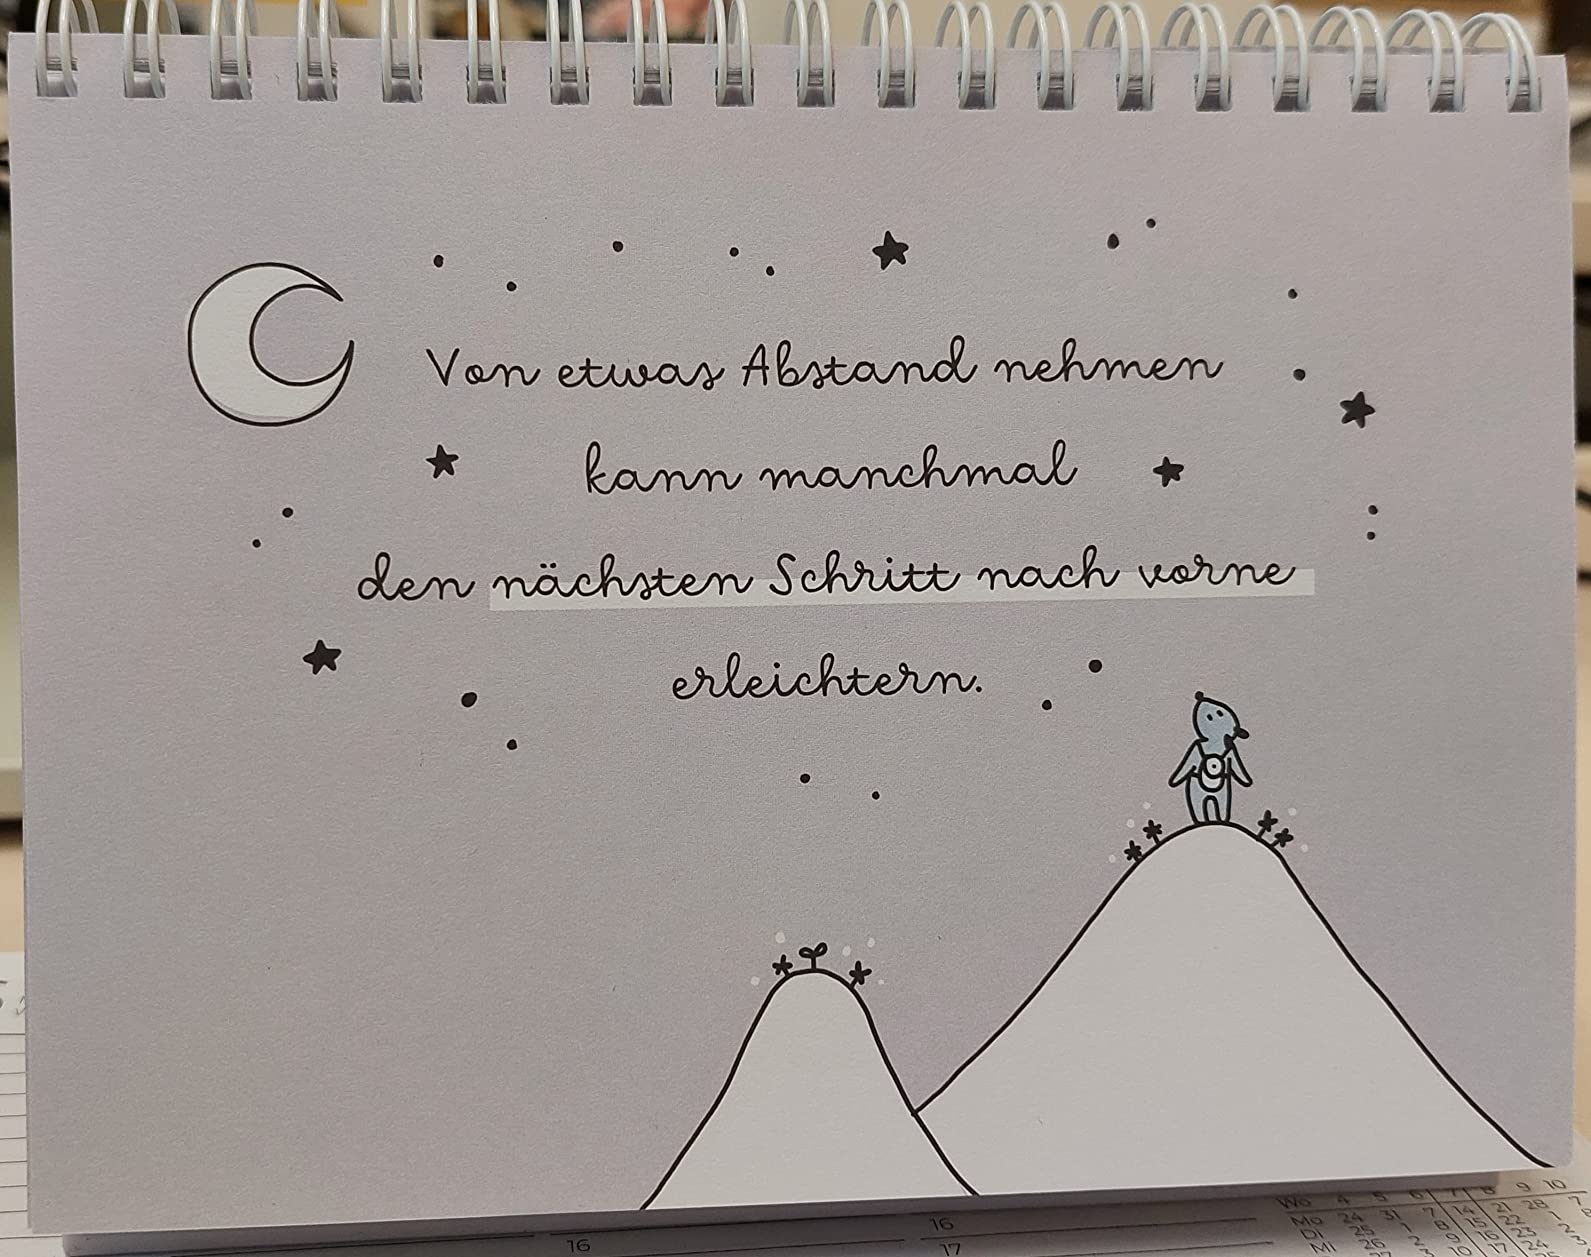 Von etwas Abstand nehmen
kann manchmal
den nächsten Schritt nach vorne
erleichtern.
16
16
17
Wo 4 5 6 7 8 9 10
Mo 24 31 7 14 21 28
Di
Mi